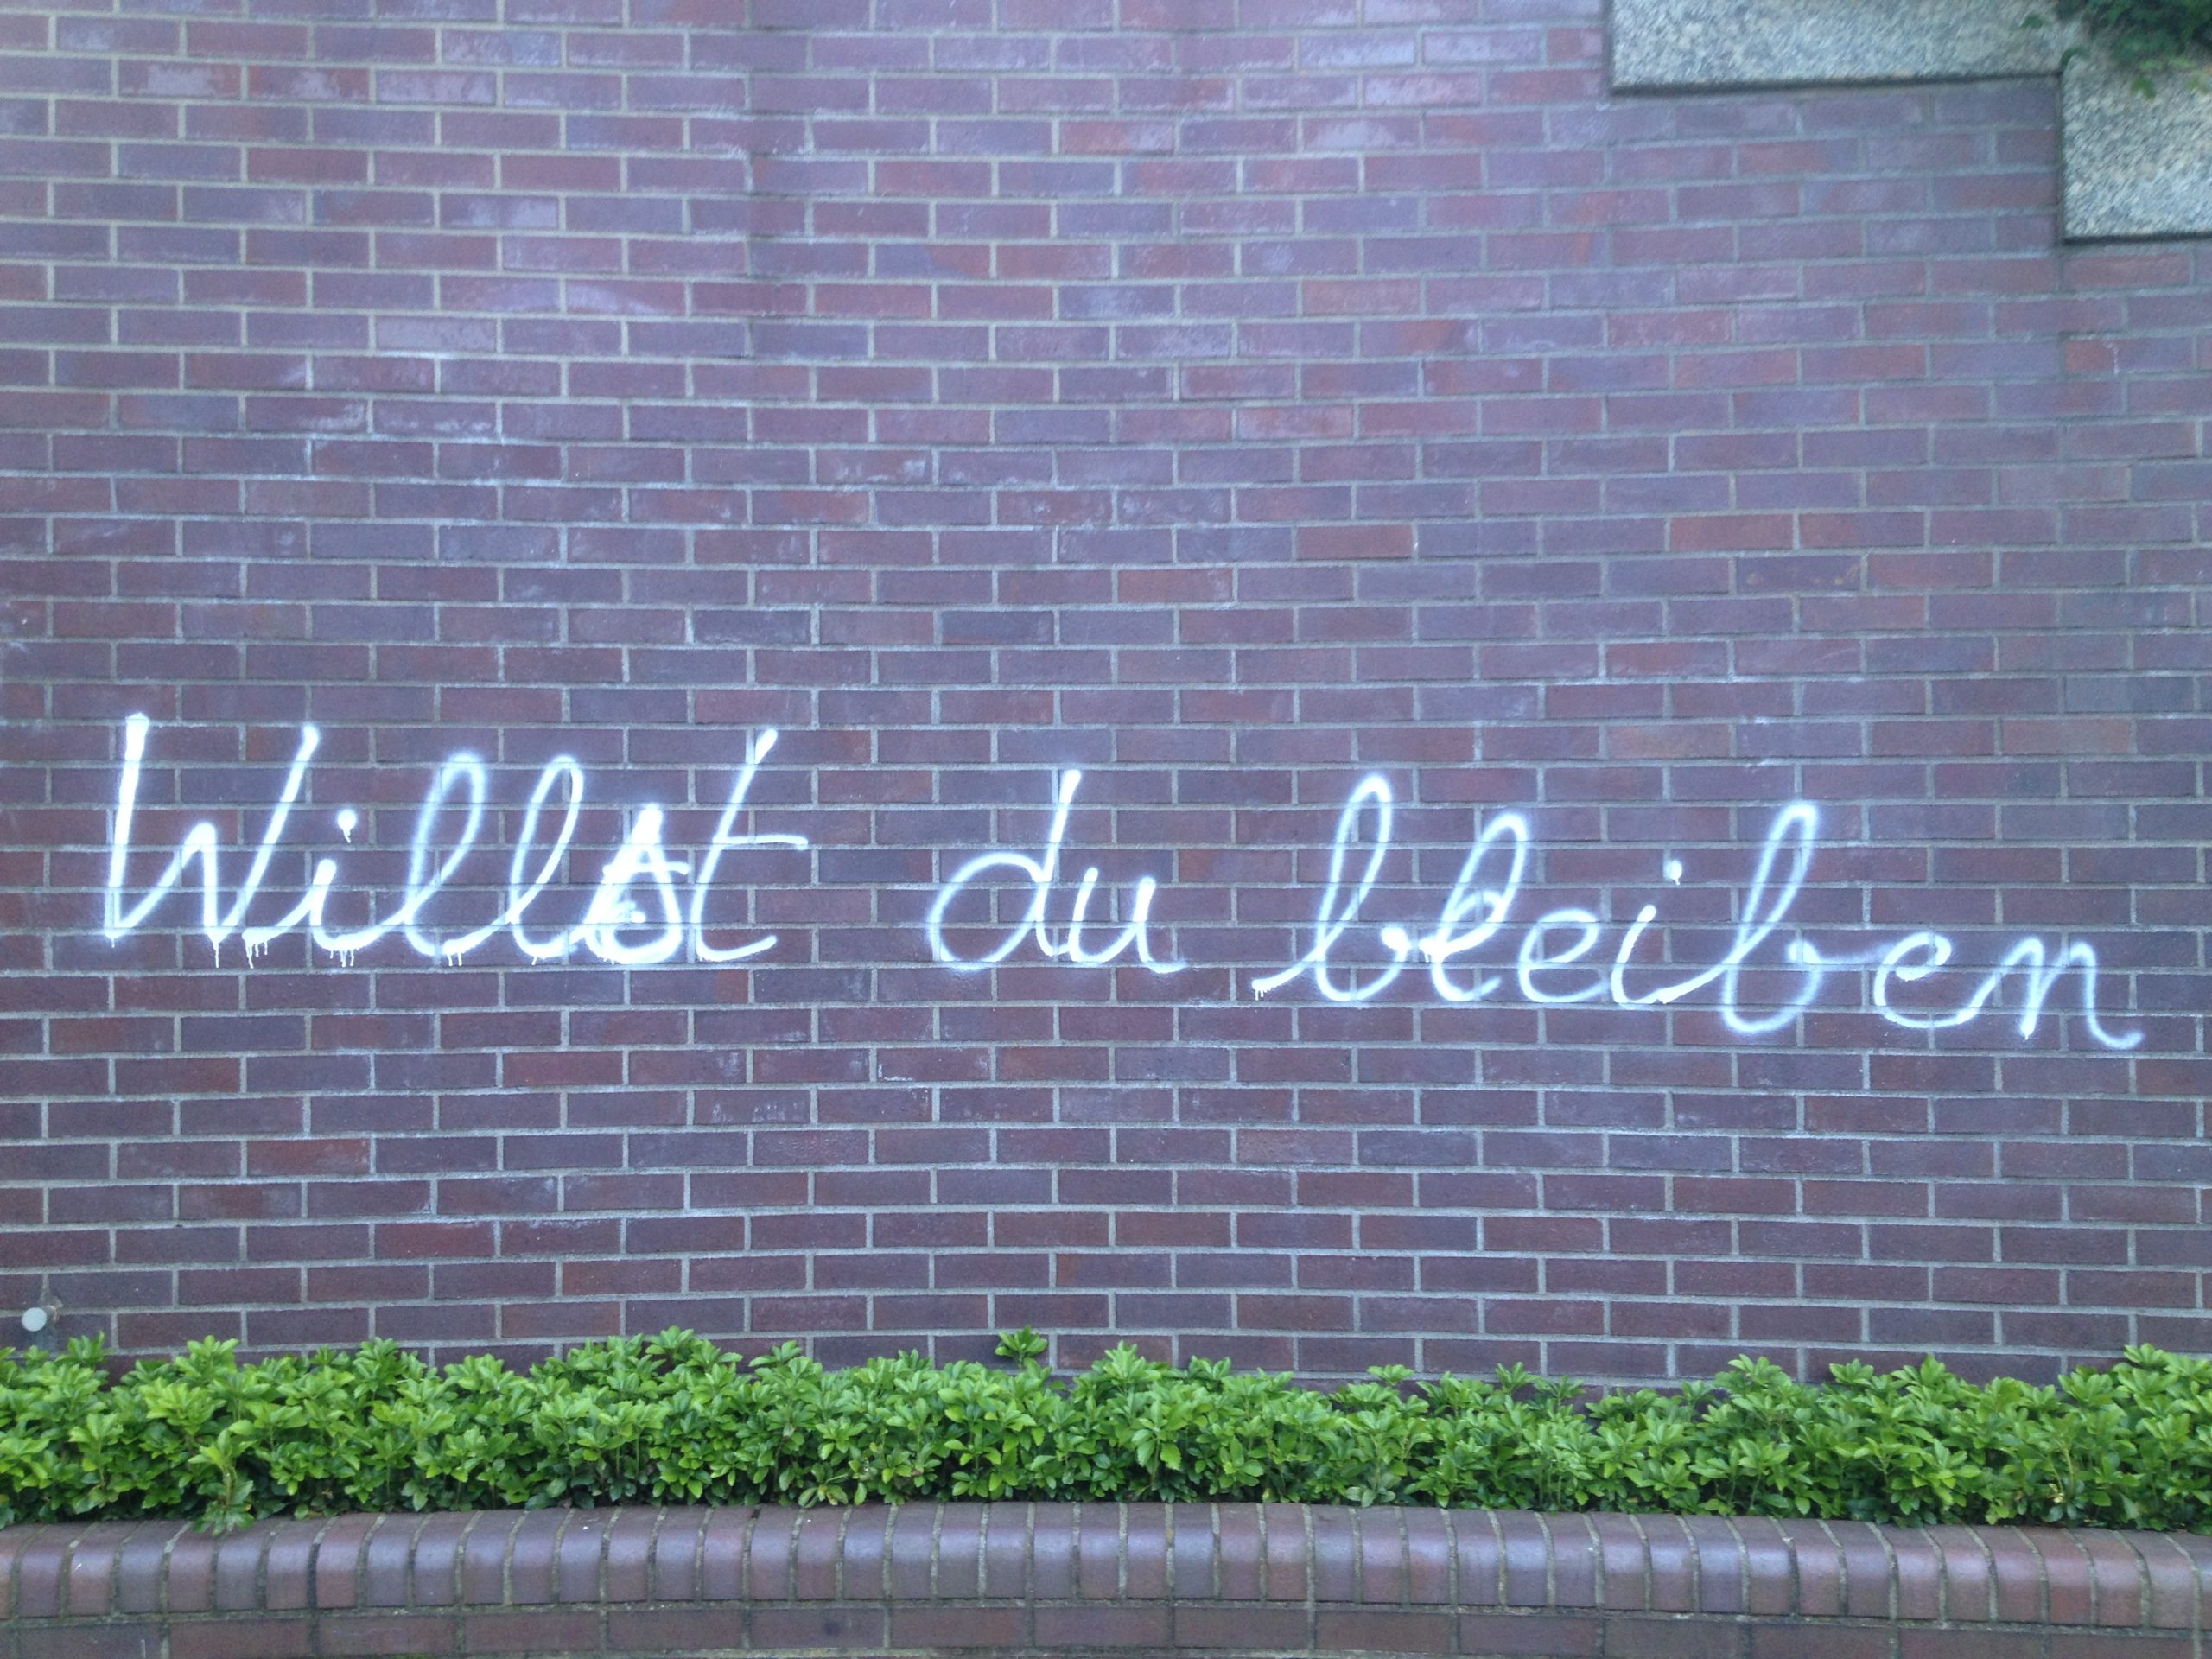 Willst du bleiben